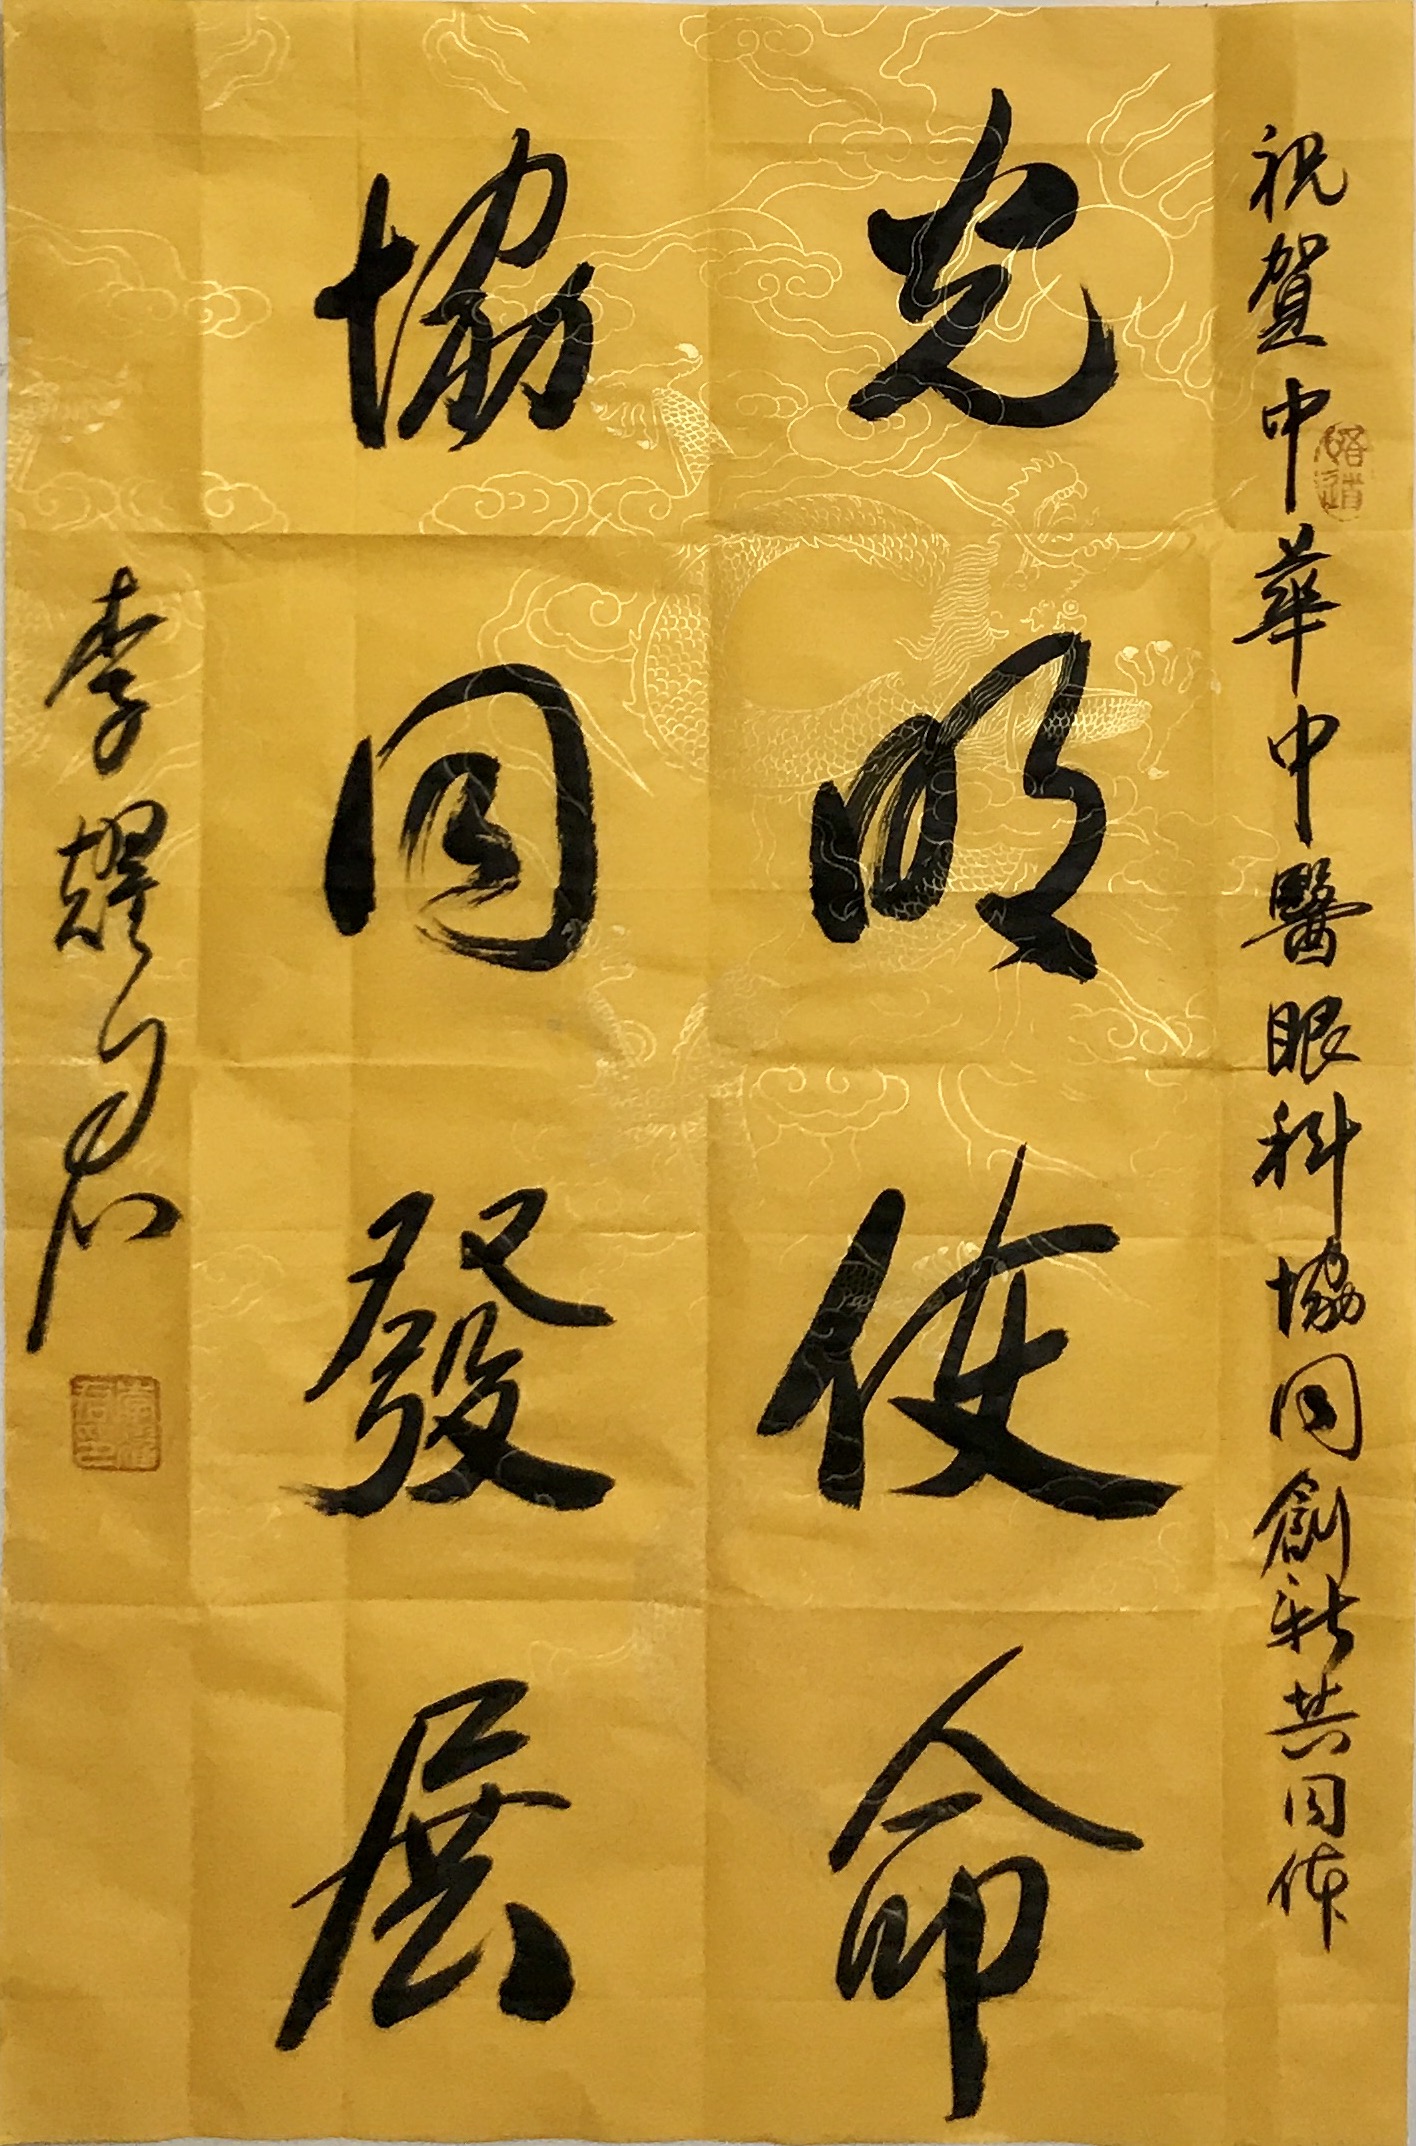 祝賀中華中醫眼科協同創新共同体
光明使命
協同發展
李耀君